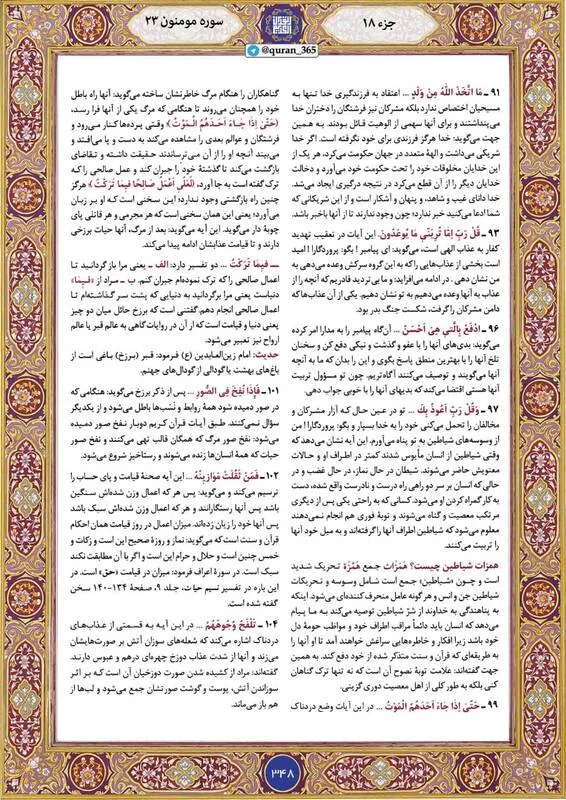 جزء ۱۸
سوره مومنون ۲۳
@quran_365
۹۱ ـ مَا اتَّخَذَ اللهُ مِنْ وَلَدٍ ... اعتقاد به فرزندگیری خدا تنها به
مسیحیان اختصاص ندارد بلکه مشرکان نیز فرشتگان را دختران خدا
می‌پنداشتند و برای آنها سهمی از الوهیت قائل بودند. به همین
جهت می‌گوید: خدا هرگز فرزندی برای خود نگرفته است. اگر خدا
شریکی می‌داشت و الهۀ متعدد در جهان حکومت می‌کرد، هر یک از
این خدایان مخلوقات خود را تحت حکومت خود می‌آورد و دخالت
خدایان دیگر را از آن قطع می‌کرد در نتیجه درگیری ایجاد می‌شد.
خدا دانای غیب و شاهد، و پنهان و آشکار است و از این شریکانی که
شما ادعا می‌کنید خبر ندارد؛ چون وجود ندارند تا از آنها باخبر باشد.
۹۳ ـ قُلْ رَبِّ إِمَّا تُرِيَنِّي مَا يُوعَدُونَ. این آیات در تعقیب تهدید
کفار به عذاب الهی است، می‌گوید: ای پیامبر! بگو: پروردگارا! امید
است بخشی از عذاب‌هایی را که به این گروه سرکش وعده می‌دهی به
من نشان دهی. در ادامه می‌افزاید: و ما بی‌تردید قادریم که آنچه را از
عذاب به آنها وعده می‌دهیم به تو نشان دهیم. یکی از آن عذاب‌ها که
دامن مشرکان را گرفت، شکست جنگ بدر بود.
۹۶ ـ ادْفَعْ بِالَّتِي هِيَ أَحْسَنُ ... آن‌گاه پیامبر را به مدارا امر کرده
می‌گوید: بدی‌های آنها را با عفو و گذشت و نیکی دفع کن و سخنان
تلخ آنها را با بهترین منطق پاسخ بگوی و این را بدان که ما به آنچه
آنها می‌گویند و توصیف می‌کنند آگاه‌تریم. چون تو مسؤول تربیت
آنها هستی اقتضا می‌کند که بدیهای آنها را با خوبی جواب دهی.
۹۷ ـ وَقُلْ رَبِّ أَعُوذُ بِكَ ... تو در عین حال که آزار مشرکان و
مخالفان را تحمل می‌کنی خود را به خدا بسپار و بگو: پروردگارا! من
از وسوسه‌های شیاطین به تو پناه می‌آورم. این آیه نشان می‌دهد که
وقتی شیاطین از انسان مأیوس شدند کمتر در اطراف او و حالات
معنویش حاضر می‌شوند. شیطان در حال نماز، در حال غضب و در
حالی که انسان بر سر دو راهی راه درست و نادرست واقع شده، دست
به کار گمراه کردن او می‌شود. کسانی که به راحتی یکی پس از دیگری
مرتکب معصیت و گناه می‌شوند و توبۀ فوری هم انجام نمی‌دهند
معلوم می‌شود که شیاطین اطراف آنها را گرفته‌اند و به میل خود آنها
را تربیت می‌کنند.
همزات شیاطین چیست؟ هَمَزات جمع هَمْزَة تحریک شدید
است و چون «شیاطین» جمع است شامل وسوسه و تحریکات
شیاطین جن و انس و هرگونه عامل منحرف کننده‌ای می‌شود. اینکه
به پناهندگی به خداوند از شرّ شیاطین توصیه می‌کند به ما پیام
می‌دهد که انسان باید دائماً مراقب اطراف خود و مواظب حومۀ دل
خود باشد زیرا افکار و خاطره‌هایی سراغش خواهند آمد تا او آنها را
به طریقه‌ای که قرآن و سنت متذکر شده از خود دفع کند. به همین
جهت گفته‌اند: علامت توبۀ نصوح آن است که نه تنها ترک گناهان
کنی بلکه به طور کلی از اهل معصیت دوری گزینی.
۹۹ ـ حَتَّىٰ إِذَا جَاءَ أَحَدَهُمُ الْمَوْتُ ... در این آیات وضع دردناک
گناهکاران را هنگام مرگ خاطرنشان ساخته می‌گوید: آنها راه باطل
خود را همچنان می‌روند تا هنگامی که مرگ یکی از آنها فرا رسد،
﴿حَتَّىٰ إِذَا جَاءَ أَحَدَهُمُ الْمَوْتُ﴾ وقتی پرده‌ها کنار می‌رود و
فرشتگان و عوالم بعدی را مشاهده می‌کند به دست و پا می‌افتد و
می‌بیند آنچه او را از آن می‌ترساندند حقیقت داشته و تقاضای
بازگشت می‌کند تا گذشتۀ خود را جبران کند و عمل صالحی را که
ترک گفته است به جا آورد، ﴿لَعَلِّي أَعْمَلُ صَالِحًا فِيمَا تَرَكْتُ﴾ هرگز
چنین راه بازگشتی وجود ندارد؛ این سخنی است که او بر زبان
می‌آورد؛ یعنی این همان سخنی است که هر مجرمی و هر قاتلی پای
چوبۀ دار می‌گوید. این آیه می‌گوید: بعد از مرگ، آنها حیات برزخی
دارند و تا قیامت عذابشان ادامه پیدا می‌کند.
ـــ فِيمَا تَرَكْتُ ... دو تفسیر دارد: الف ـ یعنی مرا بازگردانید تا
اعمال صالحی را که ترک نموده‌ام جبران کنم. ب ـ مراد از «فِيمَا»
دنیاست یعنی مرا برگردانید به دنیایی که پشت سر گذاشته‌ام تا
اعمال صالحی انجام دهم. گفتنی است که برزخ حائل میان دو چیز
یعنی دنیا و قیامت است که از آن در روایات گاهی به عالم قبر یا عالم
ارواح نیز تعبیر می‌شود.
حدیث: امام زین‌العابدین (ع) فرمود: قبر (برزخ) باغی است از
باغ‌های بهشت یا گودالی از گودال‌های جهنم.
۱۰۱ ـ فَإِذَا نُفِخَ فِي الصُّورِ ... پس از ذکر برزخ می‌گوید: هنگامی که
در صور دمیده شود همۀ روابط و نَسَب‌ها باطل می‌شود و از یکدیگر
سؤال نمی‌کنند. طبق آیات قرآن کریم دوبار نفخ صور دمیده
می‌شود: نفخ صور مرگ که همگان قالب تهی می‌کنند و نفخ صور
حیات که همۀ انسان‌ها زنده می‌شوند و رستاخیز شروع می‌شود.
۱۰۲ ـ فَمَنْ ثَقُلَتْ مَوَازِينُهُ ... این آیه صحنۀ قیامت و پای حساب را
ترسیم می‌کند و می‌گوید: پس هر که اعمال وزن شده‌اش سنگین
باشد پس آنها رستگارانند و هر که اعمال وزن شده‌اش سبک باشد
پس آنها خود را زیان زده‌اند. میزان اعمال در روز قیامت همان احکام
قرآن و سنت است که می‌گوید: نماز و روزۀ صحیح این است و زکات و
خمس چنین است و حلال و حرام این است و اگر با آن مطابقت نکند
سبک است. در سورۀ اعراف فرمود: میزان در قیامت «حق» است. در
این باره در تفسیر نسیم حیات، جلد ۹، صفحۀ ۱۳۴-۱۴۰ سخن
گفته شده است.
۱۰۴ ـ تَلْفَحُ وُجُوهَهُمُ ... در این آیه به قسمتی از عذاب‌های
دردناک اشاره می‌کند که شعله‌های سوزان آتش بر صورت‌هایشان
می‌زند و آنها از شدت عذاب دوزخ چهره‌ای درهم و عبوس دارند.
گفته‌اند: مراد از کشیده شدن صورت دوزخیان آن است که بر اثر
سوزاندن آتش، پوست و گوشت صورتشان جمع می‌شود و لب‌ها از
هم باز می‌ماند.
۳۴۸